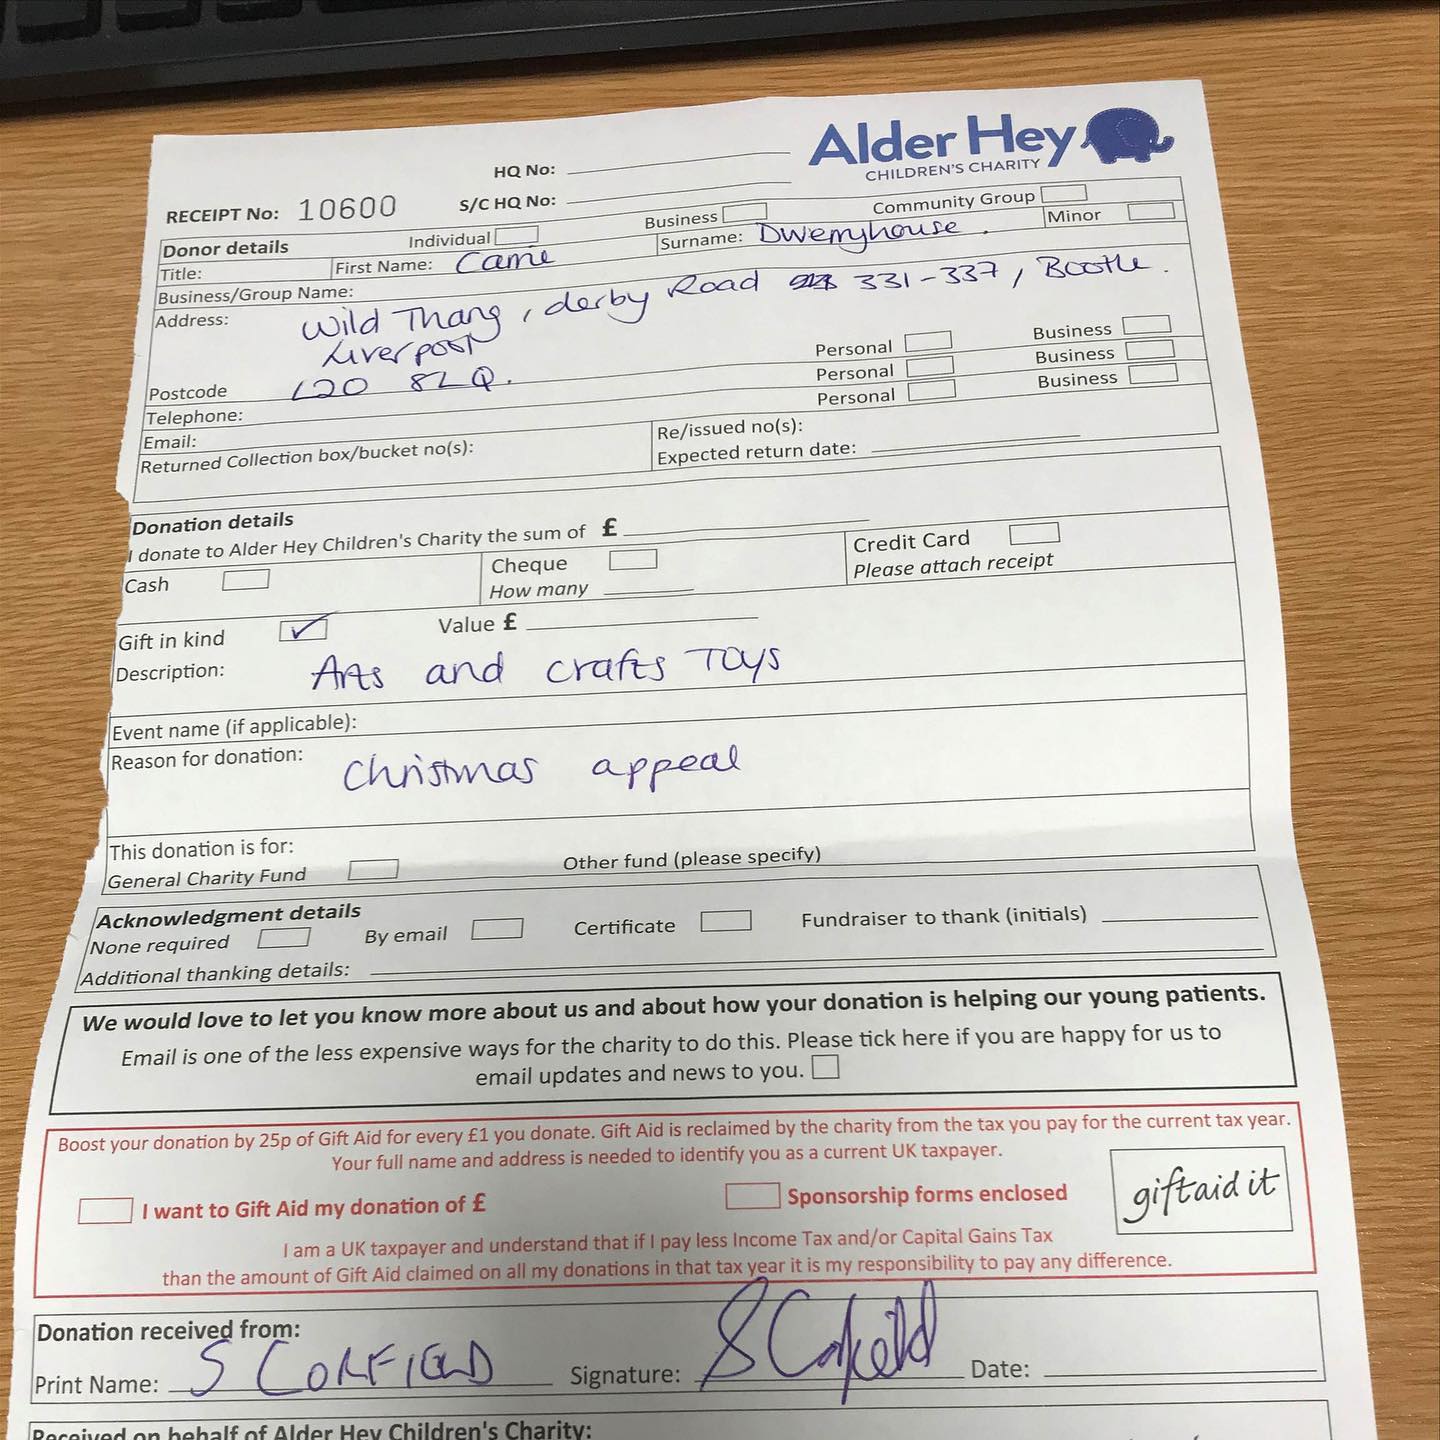 Alder Hey
CHILDREN'S CHARITY
HQ No:
RECEIPT No: 10600 S/C HQ No:
Donor details Individual Business Community Group
Title: First Name: Carrie Surname: Dwerryhouse . Minor
Business/Group Name:
Address: Wild Thang, derby Road 331-337, Bootle.
Liverpool
Postcode L20 8LQ. Personal Business
Telephone: Personal Business
Email: Personal Business
Returned Collection box/bucket no(s): Re/issued no(s):
Expected return date:
Donation details
I donate to Alder Hey Children's Charity the sum of £
Cash Cheque Credit Card
How many Please attach receipt
Gift in kind ✓ Value £
Description: Arts and crafts Toys
Event name (if applicable):
Reason for donation: Christmas appeal
This donation is for:
General Charity Fund Other fund (please specify)
Acknowledgment details
None required By email Certificate Fundraiser to thank (initials)
Additional thanking details:
We would love to let you know more about us and about how your donation is helping our young patients.
Email is one of the less expensive ways for the charity to do this. Please tick here if you are happy for us to
email updates and news to you.
Boost your donation by 25p of Gift Aid for every £1 you donate. Gift Aid is reclaimed by the charity from the tax you pay for the current tax year.
Your full name and address is needed to identify you as a current UK taxpayer.
I want to Gift Aid my donation of £ Sponsorship forms enclosed giftaid it
I am a UK taxpayer and understand that if I pay less Income Tax and/or Capital Gains Tax
than the amount of Gift Aid claimed on all my donations in that tax year it is my responsibility to pay any difference.
Donation received from:
Print Name: S CORFIELD Signature: S Corfield Date:
Received on behalf of Alder Hey Children's Charity: